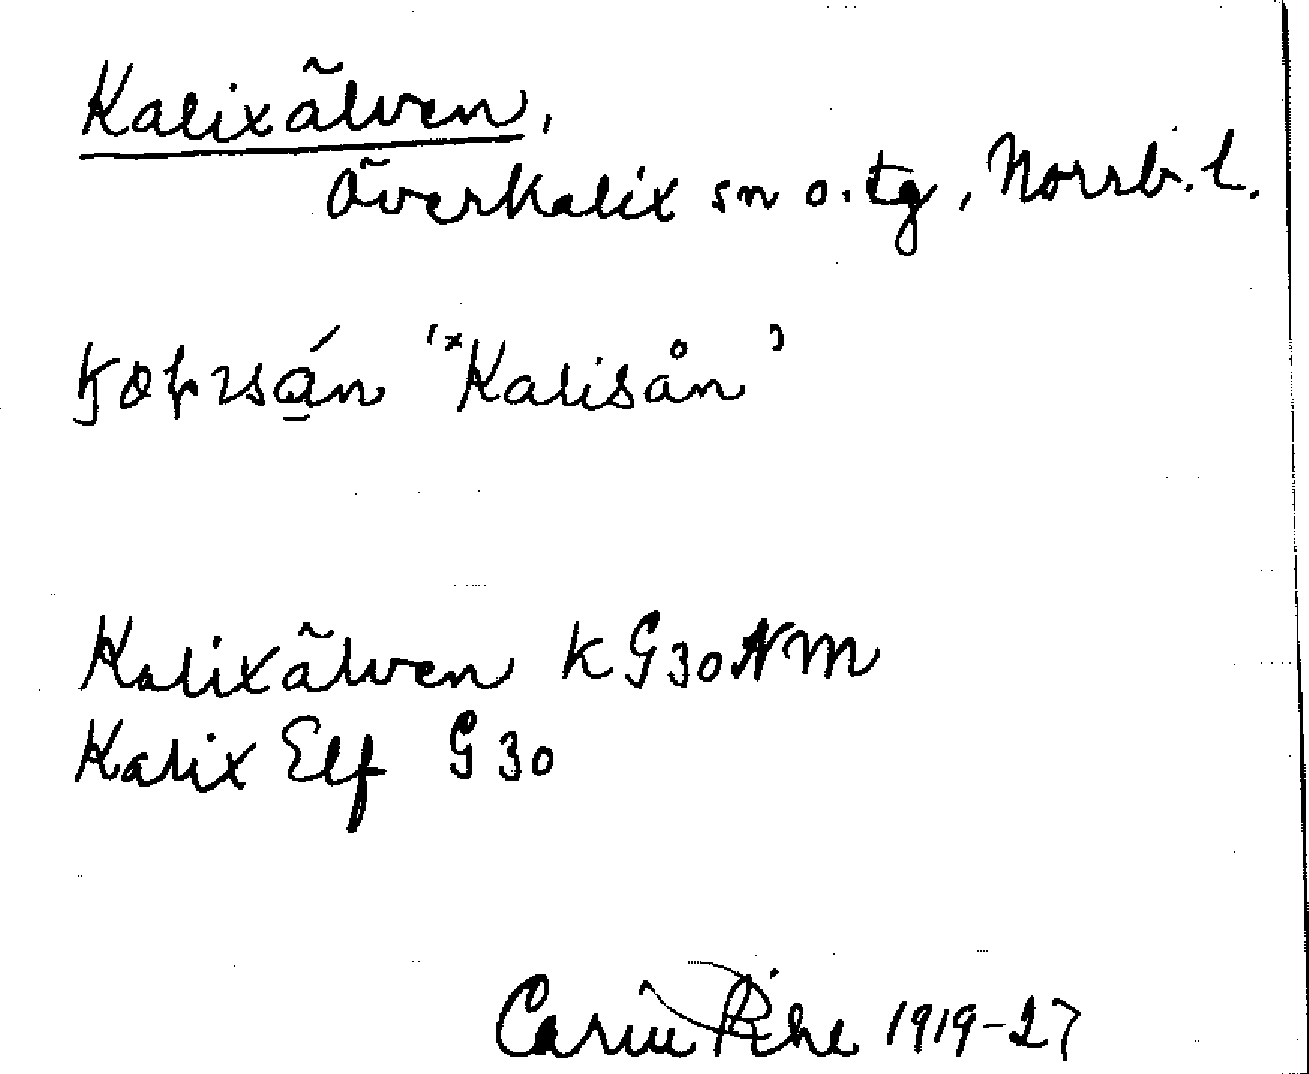 Kalixälven,
Överkalix sn o. tg, Norrb. l.
'*Kalisån'
Kalixälven K G30NM
Kalix Elf G30
Carin Pihl 1919-27